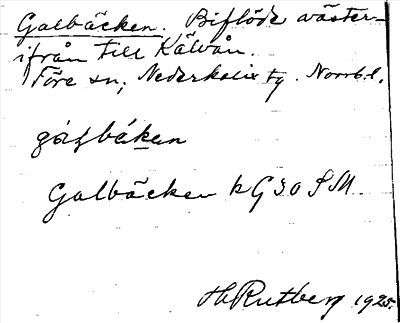 Galbäcken. Biflöde väster-
ifrån till Kälvån.
Töre sn, Nederkalix tg. Norrb. l.
gálbäken
Galbäcken k G30 SM.
H. Rutberg 1925.